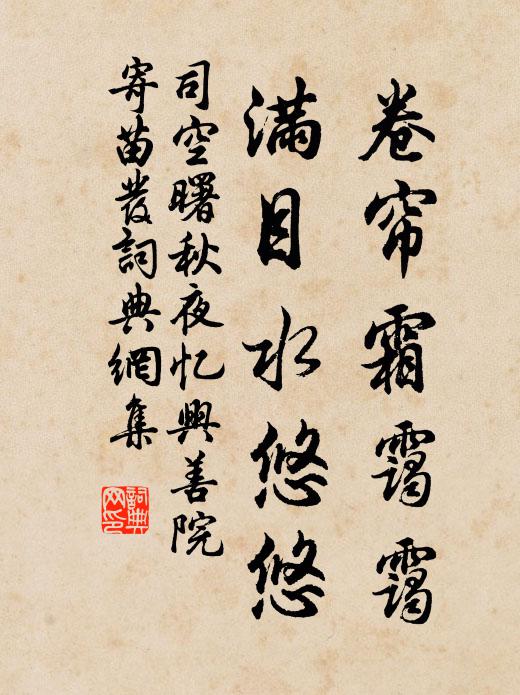 卷帘霜霭霭
满目水悠悠
司空曙秋夜忆興善院
寄苗發詞典網集
詞典
网印